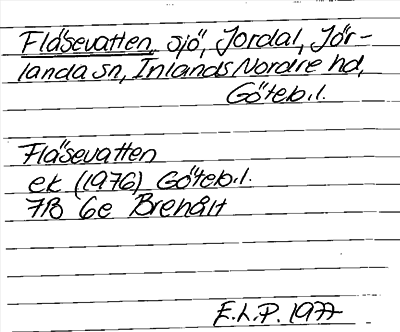 Flåsevatten, sjö, Jordal, Jör-
landa sn, Inlands Nordre hd,
Göteb.l.
Flåsevatten
ek (1976) Göteb.l.
7B 6e Brehålt
E.L.P. 1977